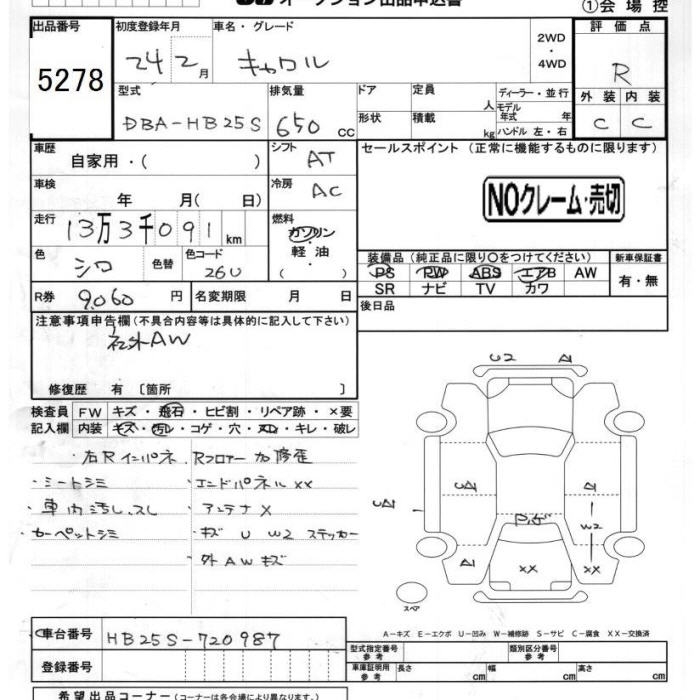 オークション出品申込書
①会場控
出品番号 初度登録年月 車名・グレード 2WD・4WD 評価点
5278 24 2月 キャロル R
型式 排気量 ドア 定員 人 ディーラー・並行 外装 内装
DBA-HB25S 650cc 形状 積載 kg モデル年式 年 ハンドル 左・右 C C
車歴 自家用・( ) シフト AT セールスポイント(正常に機能するものに限ります)
車検 年 月( 日) 冷房 AC NOクレーム・売切
走行 13万3千091km 燃料 ガソリン 軽油 ( )
色 シロ 色替 色コード 26U
装備品(純正品に限り○をつけてください) 新車保証書
PS PW ABS エアB AW 有・無
SR ナビ TV カワ
R券 9,060円 名変期限 月 日 後日品
注意事項申告欄(不具合内容等は具体的に記入して下さい)
社外AW
修復歴 有〔箇所 〕
検査員 FW キズ・飛石・ヒビ割・リペア跡・×要
記入欄 内装 キズ・汚レ・コゲ・穴・ヌレ・キレ・破レ
右Rインパネ Rフロアー 修歪
・シートシミ ・エンドパネルXX
・車内汚し、スレ ・アンテナX
カーペットシミ ・キズ U W2 ステッカー
・外AWキズ
U2 A
A
W2
XX XX
スペア
A-キズ E-エクボ U-凹み W-補修跡 S-サビ C-腐食 XX-交換済
車台番号 HB25S-720987
型式指定番号 参考 類別区分番号 参考
登録番号 車庫証明用 参考 長さ cm 幅 cm 高さ cm
希望出品コーナー(コーナーは各会場により異なります。)